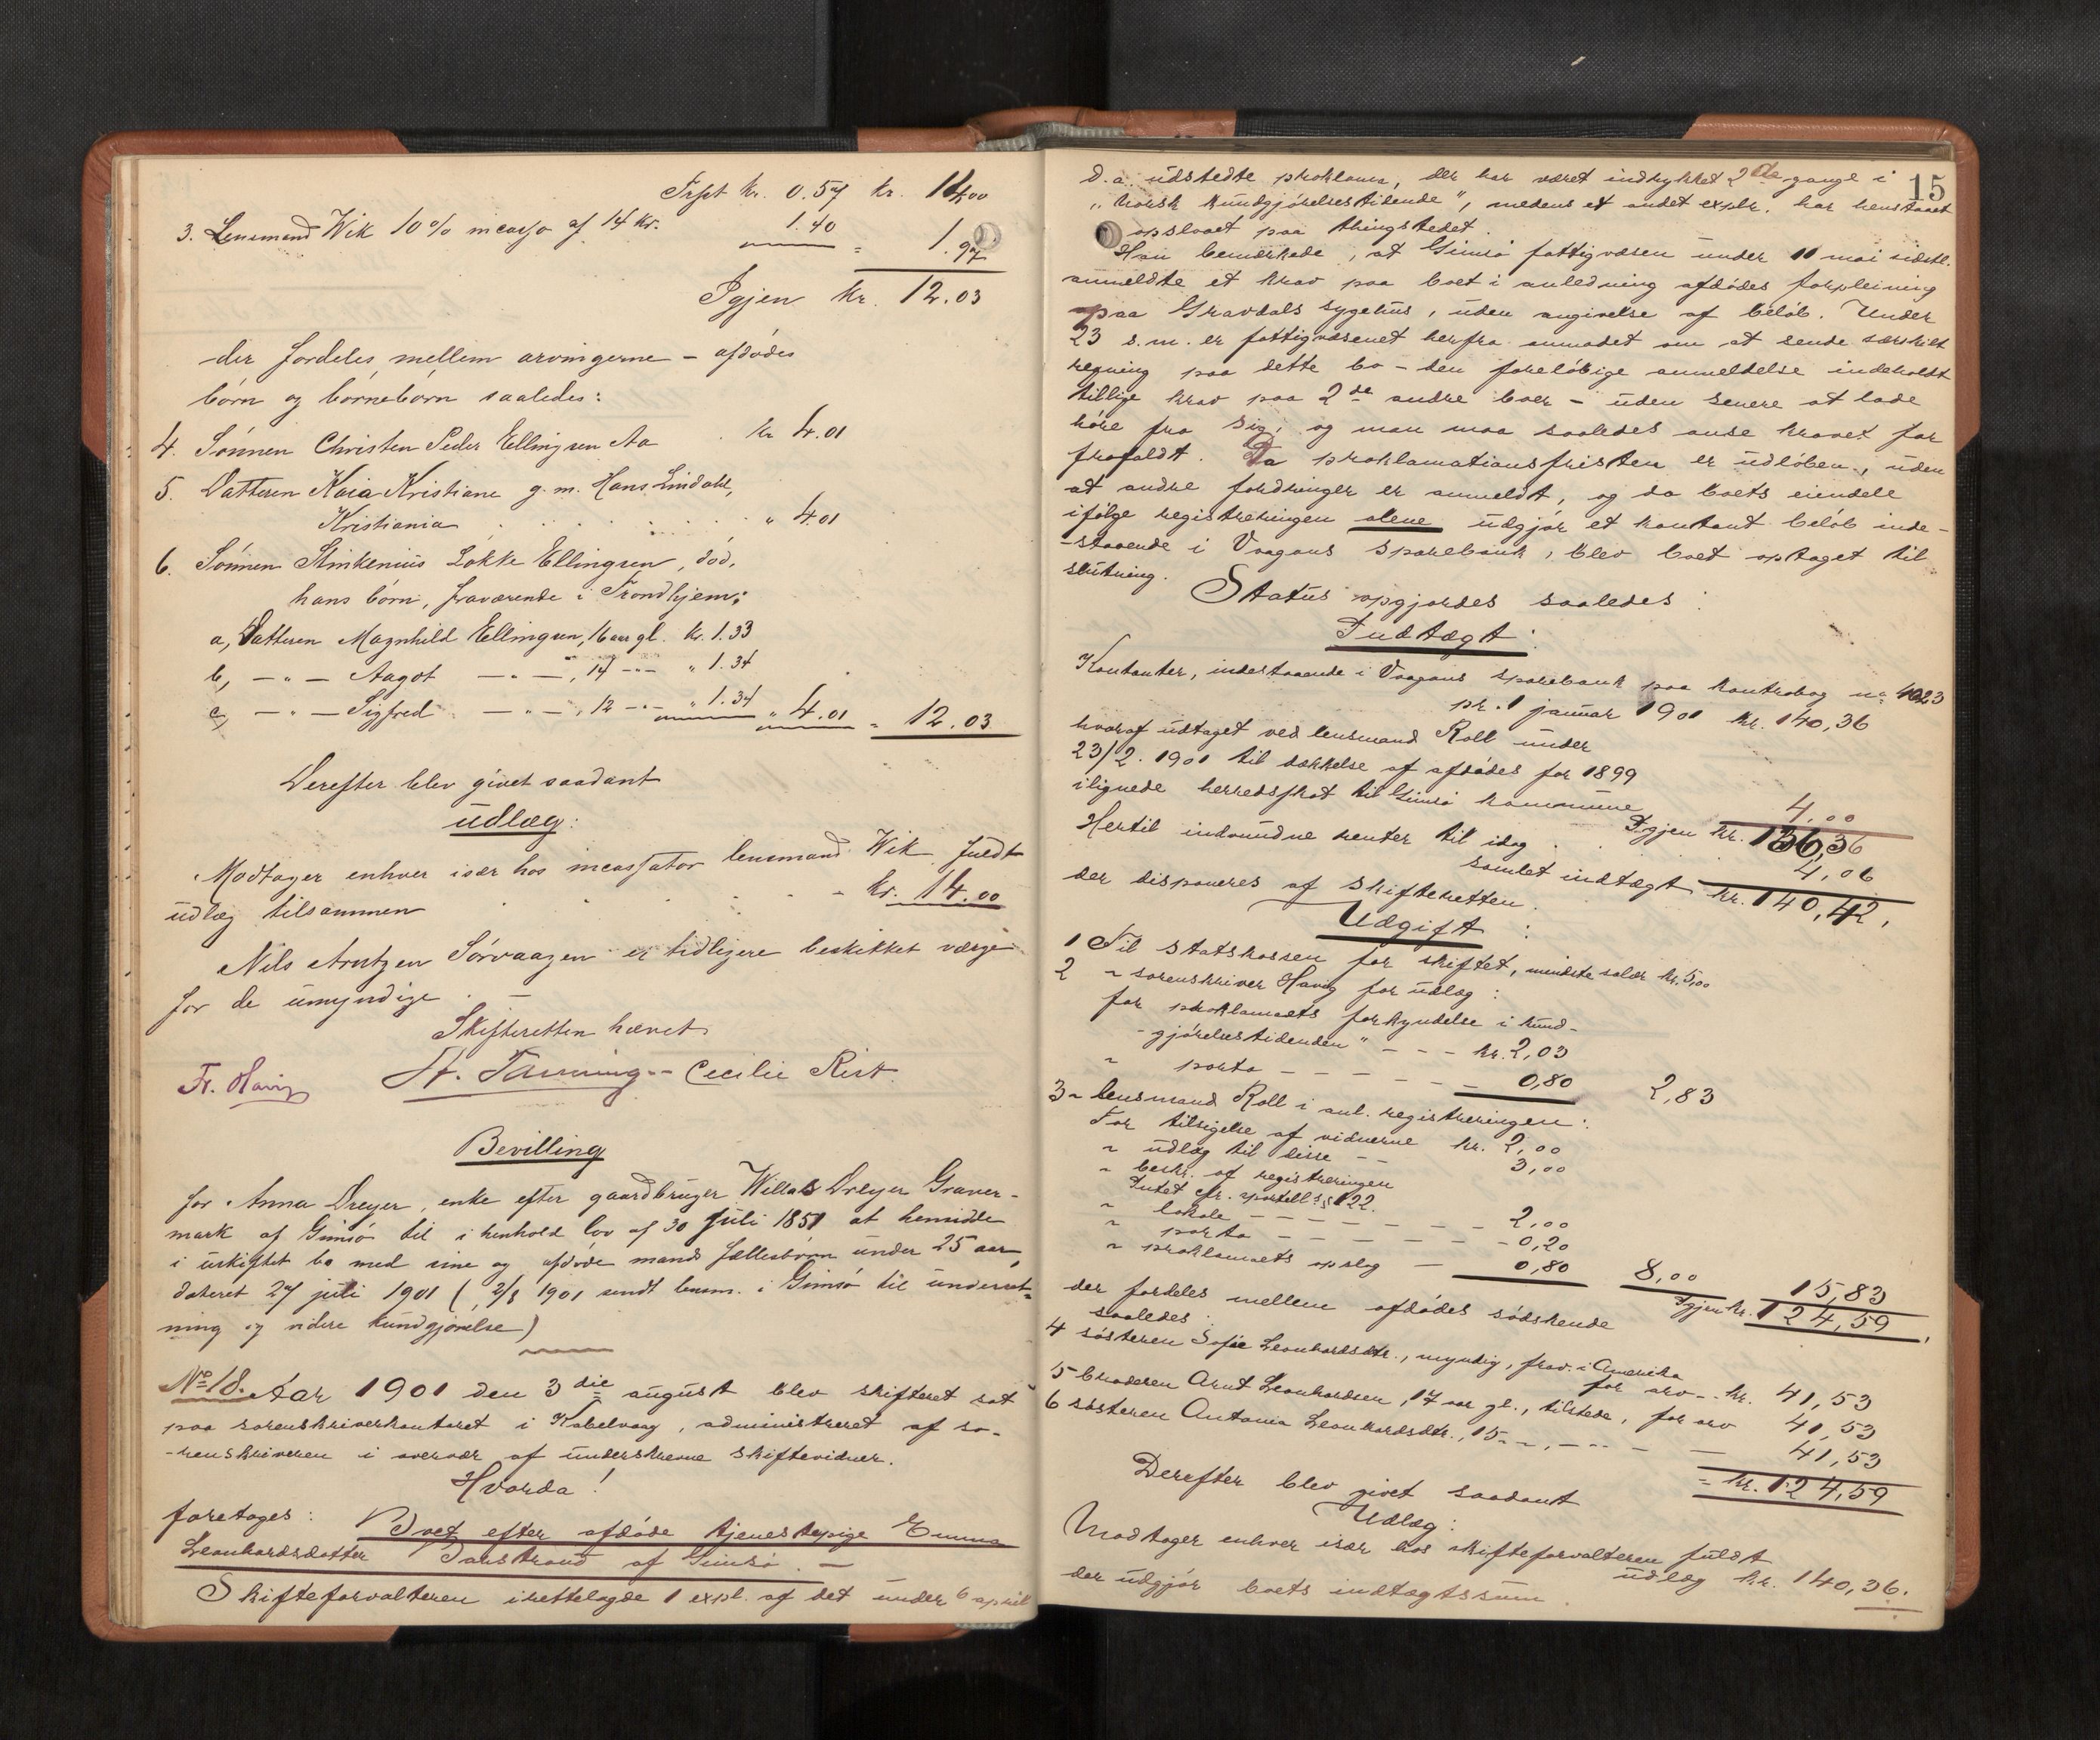 Trspt kr. 0.57 kr. 14.00
3. Lensmand Wik 10% incasso af 14 kr. 1.40 = 1.97
Igjen kr. 12.03
der fordeles mellem arvingerne – afdødes
børn og børnebørn saaledes:
4. Sønnen Christen Peder Ellingsen Aa . kr 4.01
5. Datteren Kaia Kristiane g. m. Hans Lindahl,
Kristiania . . . . . . . " 4.01
6. Sønnen Stinkenius Løkke Ellingsen, død,
hans børn, fraværende i Trondhjem:
a, Datteren Magnhild Ellingsen, 16 aar gl. kr. 1.33
b, – " – Aagot – " –, 14 – " – " 1.34
c, – " – Sigfred – " –, 12 – " – " 1.34 " 4.01 = 12.03
Derefter blev givet saadant
udlæg:
Modtager enhver især hos incassator lensmand Wik fuldt
udlæg tilsammen . . . . – kr. 14.00
Nils Arntzen Sørvaagen er tidligere beskikket værge
for de umyndige.
Skifteretten hævet
Fr. Havig St. Tanning – Cecilie Rist.
Bevilling
for Anna Dreyer, enke efter gaardbruger Willas Dreyer Graver-
mark af Gimsø til i henhold lov af 30 juli 1851 at hensidde
i uskiftet bo med sine og afdøde mands fællesbørn under 25 aar,
dateret 27 juli 1901 (2/8 1901 sendt lensm. i Gimsø til underret-
ning og videre kundgjørelse)
No 18. Aar 1901 den 3die august blev skifteret sat
paa sorenskriverkontoret i Kabelvaag, administreret af so-
-renskriveren i overvær af underskrevne skiftevidner.
Hvorda!
foretoges: Boet efter afdøde tjenestepige Emma
Leonhardsdatter Barstrand af Gimsø. –
Skifteforvalteren irettelagde 1 expl. af det under 6 april
15
d. a. udstedte proklama, der har været indrykket 2de gange i
"Norsk Kundgjørelsestidende", medens et andet explr. har henstaaet
opslaaet paa thingstedet.
Han bemærkede, at Gimsø fattigvæsen under 11 mai sidstl.
anmeldte et krav paa boet i anledning afdødes forpleining
paa Gravdals sygehus, uden angivelse af beløb. Under
23 s. m. er fattigvæsenet herfra anmodet om at sende særskilt
regning paa dette bo – den foreløbige anmeldelse indeholdt
tillige krav paa 2de andre boer – uden senere at lade
høre fra sig, og man maa saaledes anse kravet for
frafaldt. Da proklamationsfristen er udløben, uden
at andre fordringer er anmeldt, og da boets eiendele
ifølge registreringen alene udgjør et kontant beløb inde-
-staaende i Vaagans sparebank, blev boet optaget til
slutning.
Status opgjordes saaledes:
Indtægt:
Kontanter, indestaaende i Vaagans sparebank paa kontrabog no 4023
pr. 1 januar 1901 kr. 140,36
hvoraf udtaget ved lensmand Roll under
23/2. 1901 til dækkelse af afdødes for 1899
ilignede herredsskat til Gimsø kommune 4,00
Igjen kr. 136,36
Hertil indvundne renter til idag . . 4,06
samlet indtægt kr. 140,42,
der disponeres af skifteretten.
Udgift:
1 Til statskassen for skiftet, mindste salær kr. 5,00
2 " sorenskriver Havig for udlæg:
for proklamaets forkyndelse i kund-
-gjørelsestidenden" – – – kr. 2,03
" porto – – – – – – 0,80 2,83
3 " lensmand Roll i anl. registreringen:
For tilsigelse af vidnerne kr. 2,00
" udlæg til disse – – 3,00
" beskr. af registreringen
Intet cfr. sportell § 122.
" lokale – – – – – – – 2,00
" porto – – – – – – – 0,20
" proklamaets opslag – 0,80 8,00 15,83
Igjen kr. 124,59,
der fordeles mellem afdødes sødskende
saaledes:
4 søsteren Sofie Leonhardsdtr., myndig, frav. i Amerika
for arv – kr. 41,53
5 broderen Arnt Leonhardsen, 17 aar gl., tilstede, for arv 41,53
6 søsteren Antonia Leonhardsdtr., 15 – " –, – " – – – 41,53
= kr. 124,59
Derefter blev givet saadant
Udlæg:
Modtager enhver især hos skifteforvalteren fuldt
udlæg kr. 140,36.
der udgjør boets indtægtssum.